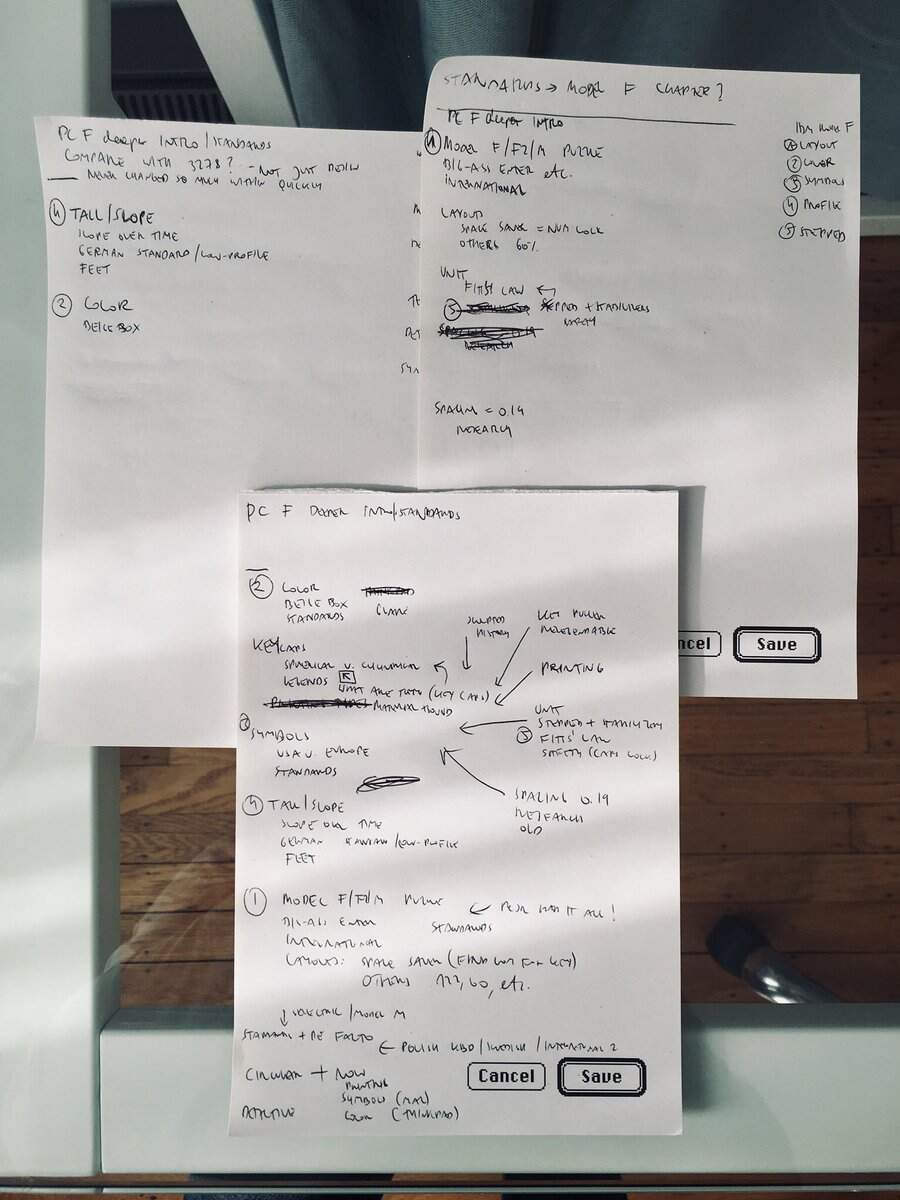 PC F deeper INTRO/STANDARDS
COMPARE WITH 3278? - NOT JUST DESIGN
NEVER CHANGED SO MUCH WITHIN QUICKLY
4 TALL/SLOPE
SLOPE OVER TIME
GERMAN STANDARD/LOW-PROFILE
FEET
2 COLOR
BEIGE BOX
STANDARDS → MODEL F CHAPTER?
PC F deeper INTRO
1 MODEL F/F2/M PUZZLE
BIG-ASS ENTER etc.
INTERNATIONAL
LAYOUT
SPACE SAVER = NUM LOCK
OTHERS 60%
UNIT
FITTS' LAW
5 STEPPED +
SPACING = 0.19
RESEARCH
F
1 LAYOUT
2 COLOR
3 SYMBOLS
4 PROFILE
5 STEPPED
ncel
Save
PC F DEEPER INTRO/STANDARDS
2 COLOR
BEIGE BOX GLARE
STANDARDS
SCULPTED
HISTORY
KEY PULLER
KEYCAPS
SPHERICAL V. CYLINDRICAL
LEGENDS
WHAT ARE THEY (KEY CAPS)
PRINTING
3 SYMBOLS
USA V. EUROPE
STANDARDS
UNIT
STEPPED +
5 FITTS' LAW
SAFETY (CAPS LOCK)
SPACING 0.19
RESEARCH
OLD
4 TALL/SLOPE
SLOPE OVER TIME
GERMAN STANDARD/LOW-PROFILE
FEET
1 MODEL F/F2/M PUZZLE
BIG-ASS ENTER
← HAD IT ALL!
STANDARDS
INTERNATIONAL
LAYOUTS: SPACE SAVER ( KEY)
OTHERS 122, 60, etc.
↓ SELECTRIC/MODEL M
STANDARD + DE FACTO
← POLISH KBD/SWEDISH/INTERNATIONAL 2
CIRCULAR + NOW
PRINTING
SYMBOLS (MAC)
COLOR (THINKPAD)
Cancel
Save